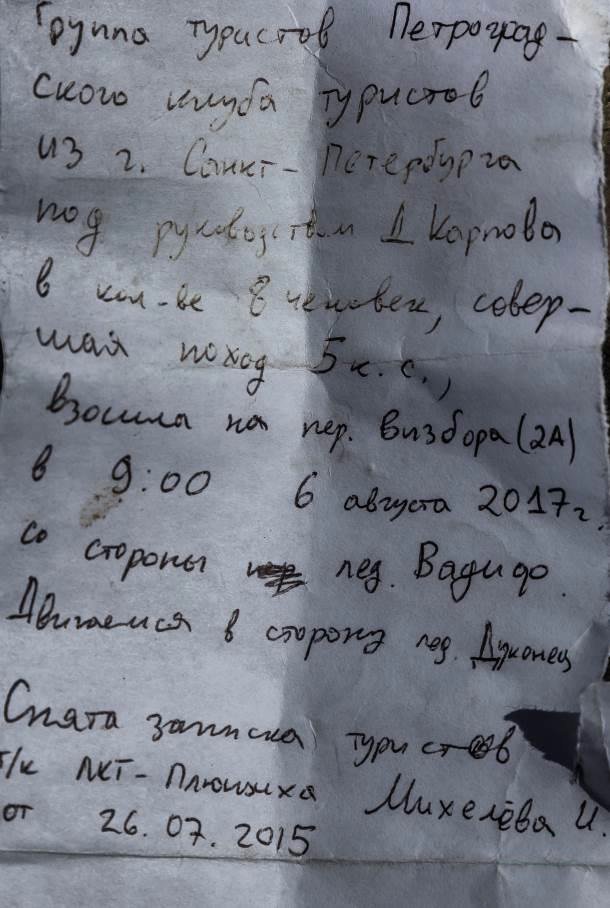 Группа туристов Петроград-
ского клуба туристов
из г. Санкт-Петербурга
под руководством Д Карпова
в кол-ве 8 человек, совер-
шая поход 5 к.с.,
взошла на пер. Визбора (2А)
в 9:00 6 августа 2017г.
со стороны лед. Вадифо.
Двигаемся в сторону лед. Дуконец
Снята записка туристов
т/к ЛКТ-Плющиха Михелёва И.
от 26.07.2015